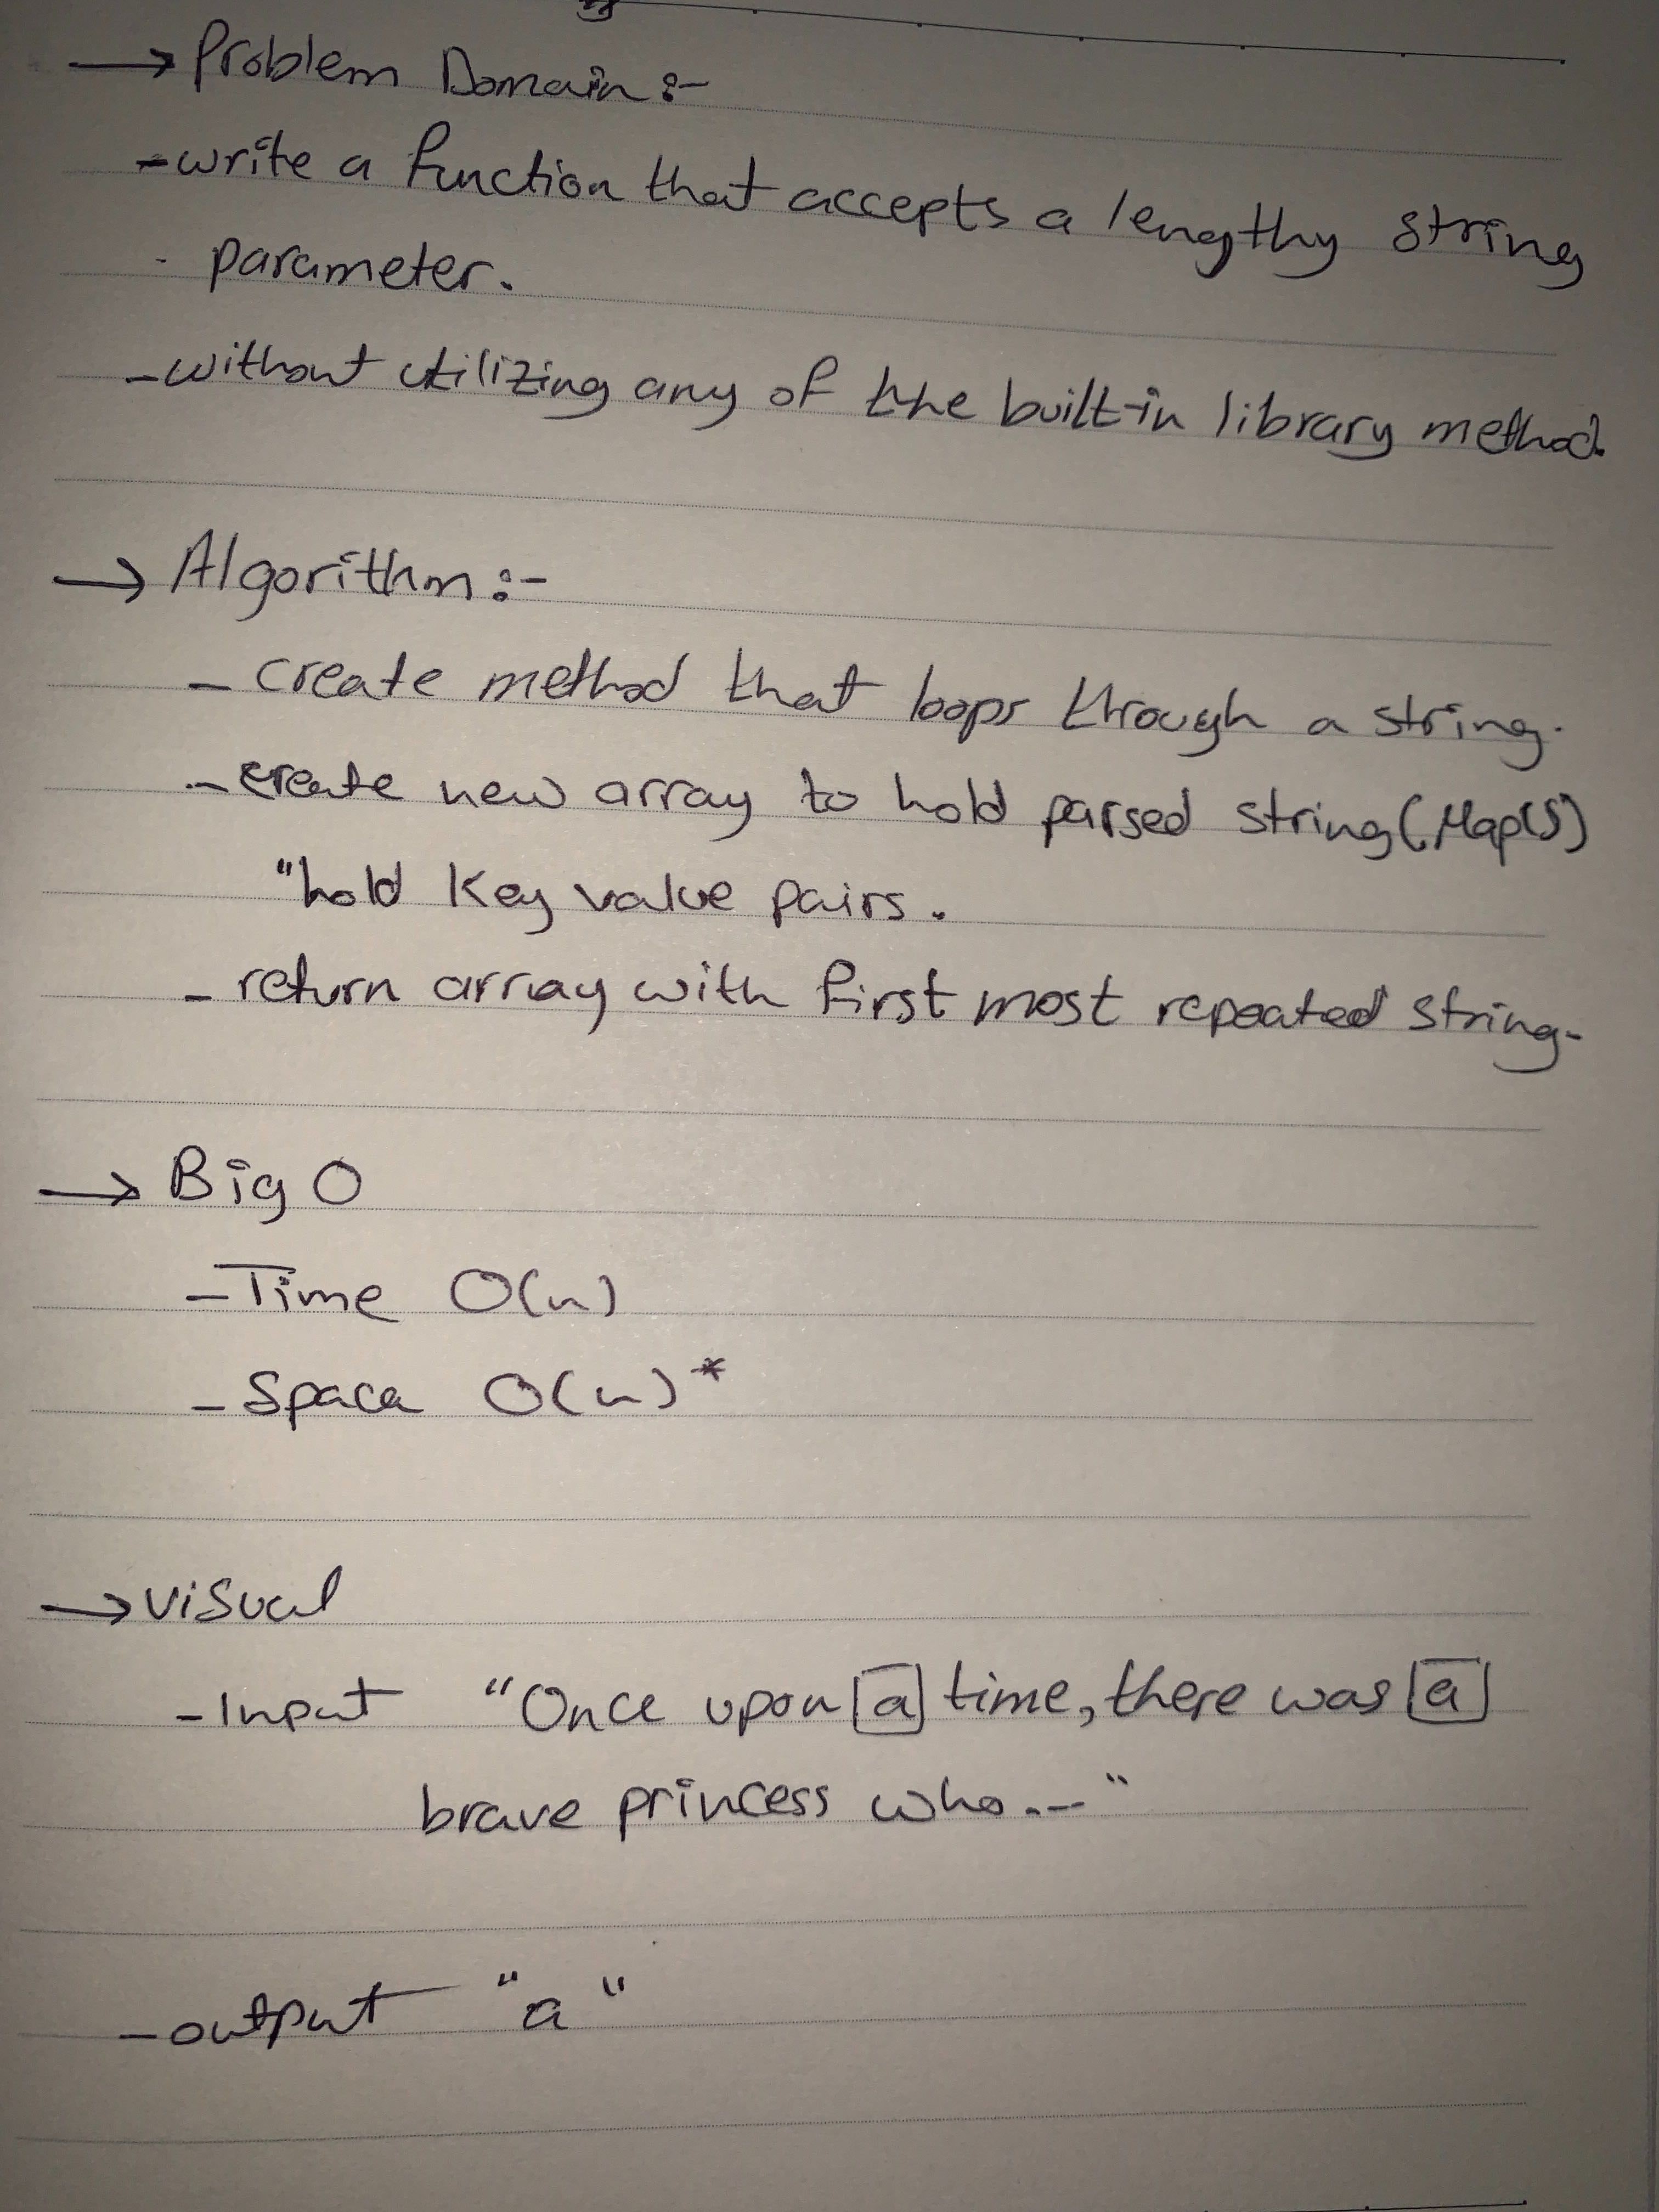 → Problem Domain :-
- write a function that accepts a lengthy string
parameter.
- without utilizing any of the built-in library method.
→ Algorithm :-
- create method that loops through a string.
- create new array to hold parsed string (.Map(s)
"hold Key value pairs.
- return array with first most repeated string.
→ Big O
- Time O(n)
- Space O(n)*
→ visual
- Input "Once upon a time, there was a
brave princess who..."
- output "a"